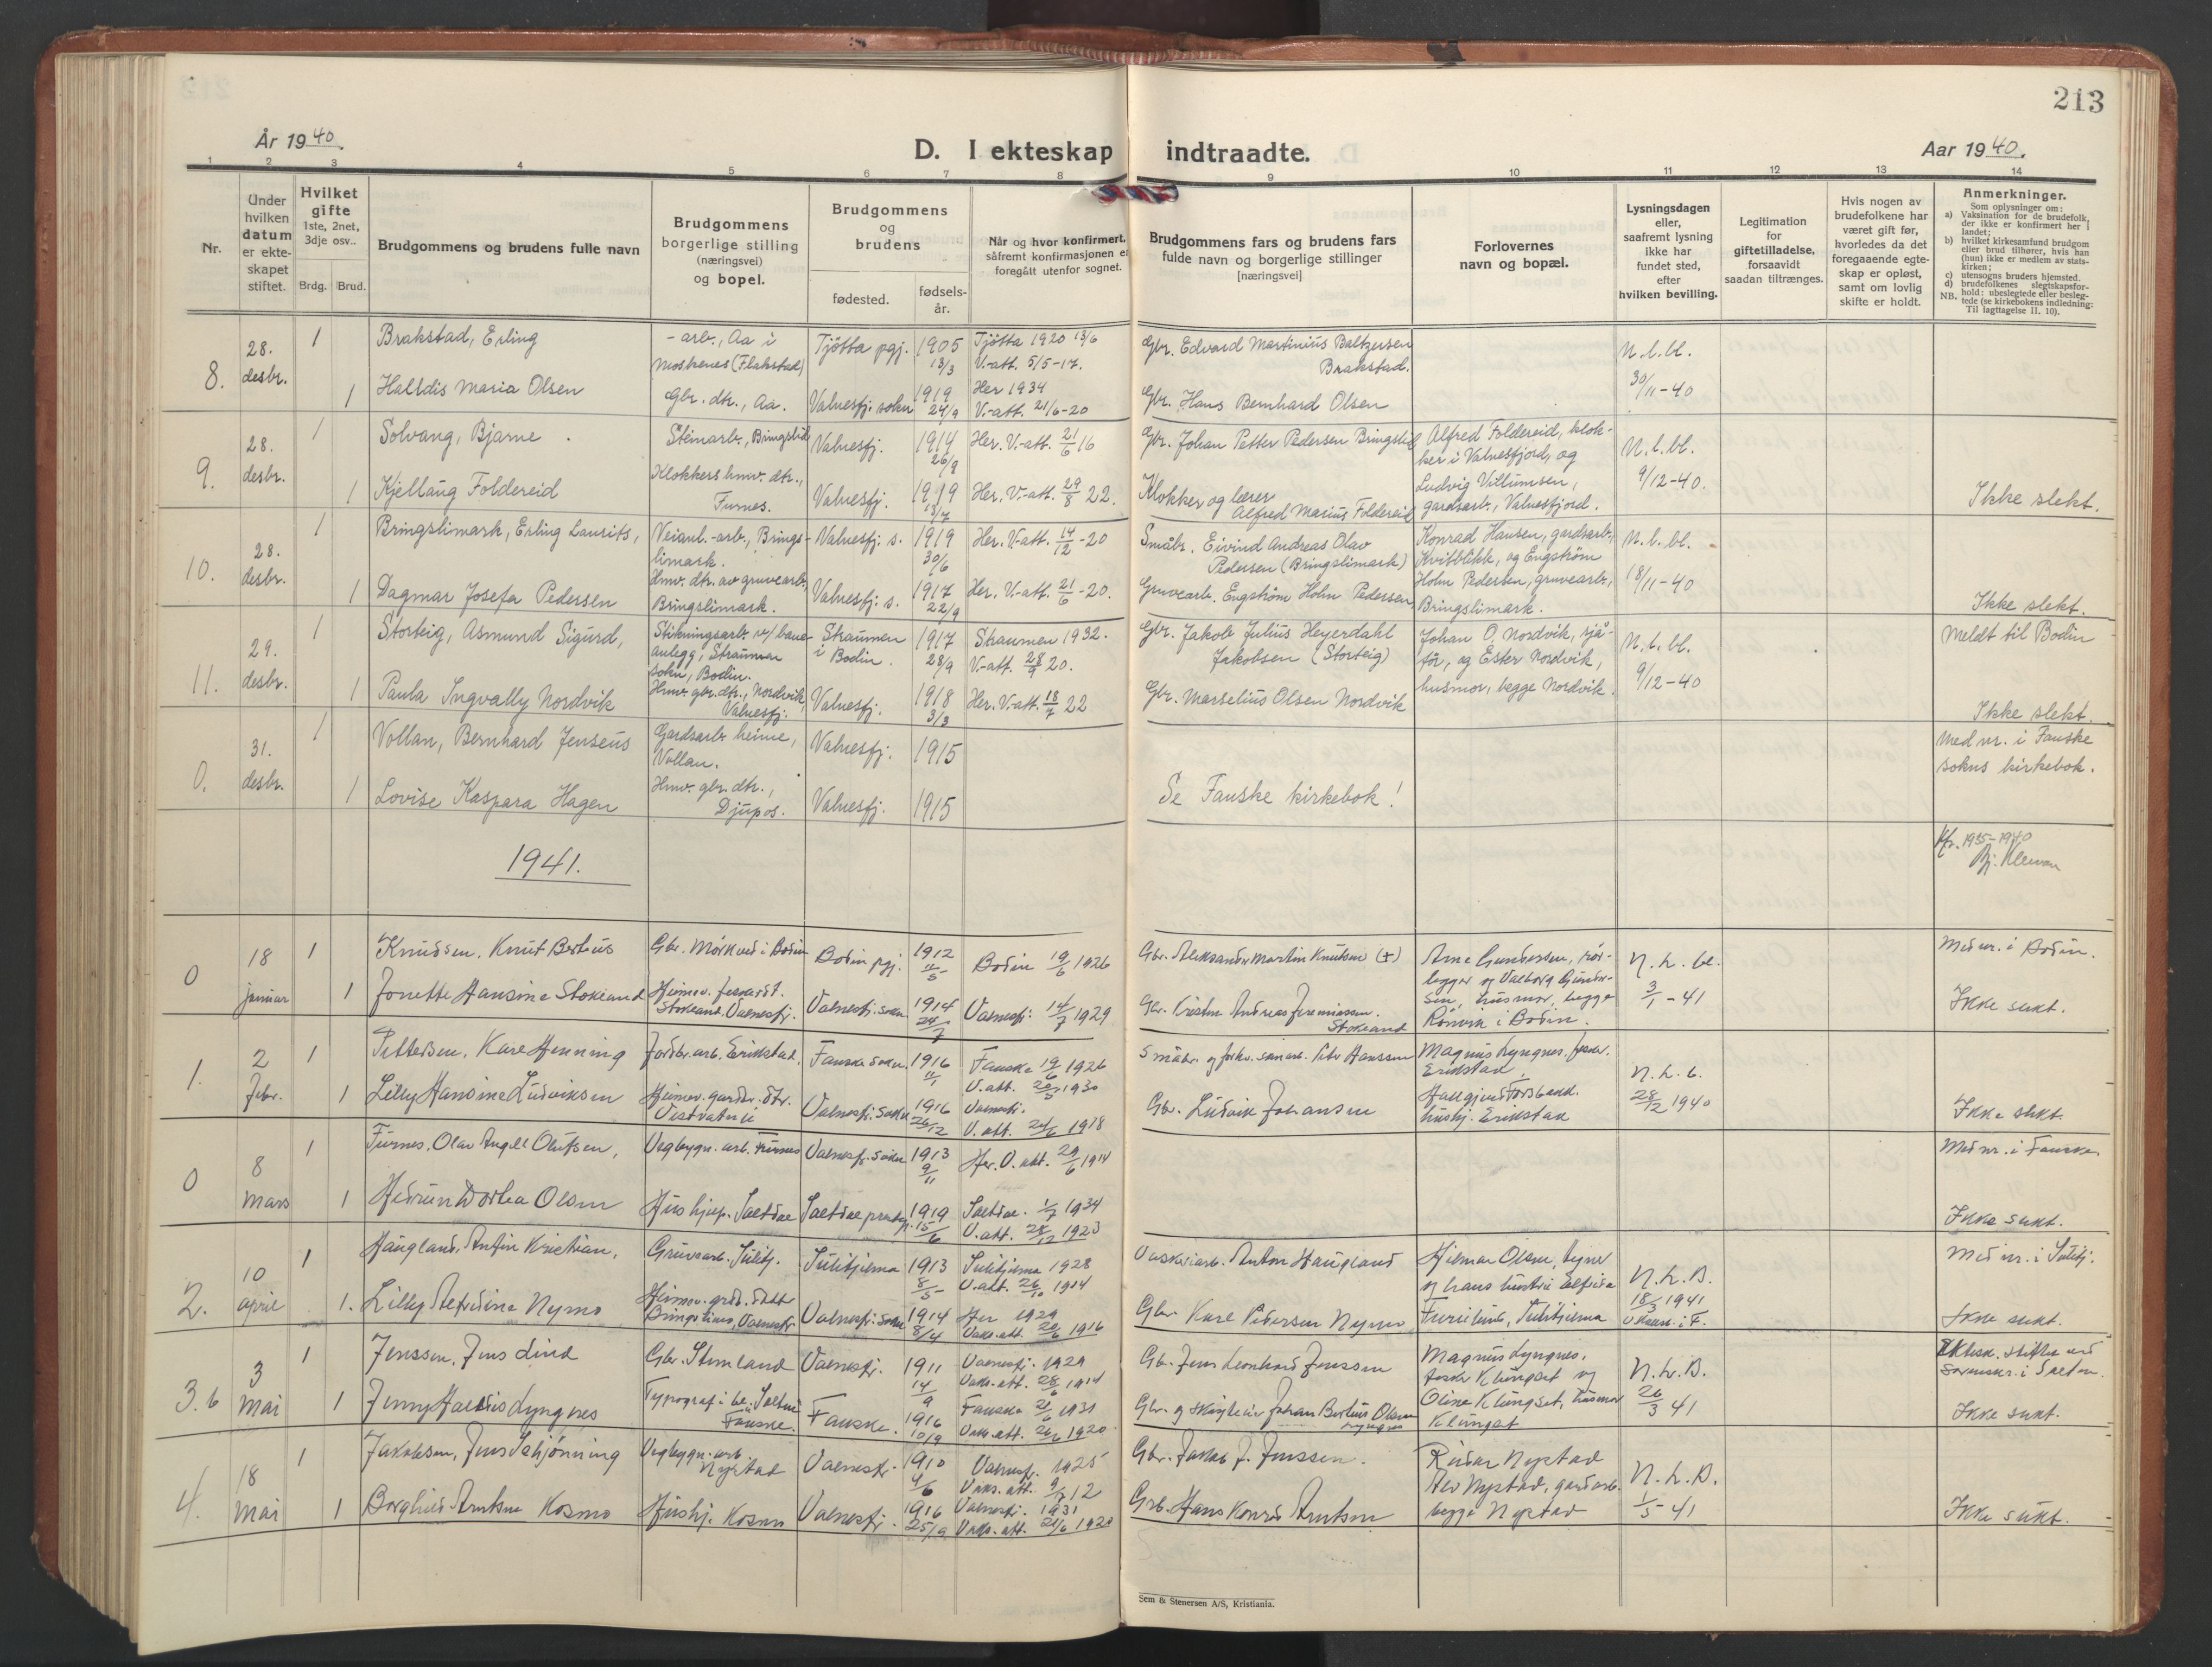 213
År 1940.
D. I ekteskap indtraadte.
Aar 1940.
1 2 3 4 5 6 7 8 9 10 11 12 13 14
Nr.
Under hvilken datum er ekteskapet stiftet.
Hvilket gifte 1ste, 2net, 3dje osv..
Brdg. Brud.
Brudgommens og brudens fulle navn
Brudgommens borgerlige stilling (næringsvei) og bopel.
Brudgommens og brudens
fødested.
fødsels-år.
Når og hvor konfirmert, såfremt konfirmasjonen er foregått utenfor sognet.
Brudgommens fars og brudens fars fulde navn og borgerlige stillinger [næringsvei]
Forlovernes navn og bopæl.
Lysningsdagen eller, saafremt lysning ikke har fundet sted, efter hvilken bevilling.
Legitimation for giftetilladelse, forsaavidt saadan tiltrænges.
Hvis nogen av brudefolkene har været gift før, hvorledes da det foregaaende egteskap er opløst, samt om lovlig skifte er holdt.
Anmerkninger.
Som oplysninger om:
a) Vaksination for de brudefolk, der ikke er konfirmert her i landet;
b) hvilket kirkesamfund brudgom eller brud tilhører, hvis han (hun) ikke er medlem av statskirken;
c) utensogns bruders hjemsted.
d) brudefolkenes slegtskapsforhold: ubeslegtede eller beslegtede (se kirkebokens indledning: Til iagttagelse II, 10).
NB.
8. 28. desbr. 1 Brakstad, Erling
- arb., Aa i Moskenes (Flakstad) Tjøtta pgj. 1905 13/3 Tjøtta 1920 13/6 V.-att. 5/5-17.
Gbr. Edvard Martinius Baltzersen Brakstad.
N.l.bl. 30/11-40
1 Halldis Maria Olsen Gbr. dtr., Aa. Valnesfj. sokn 1919 24/9 Her 1934 V.-att. 21/6-20
Gbr. Hans Bernhard Olsen
9. 28. desbr. 1 Solvang, Bjarne. Steinarb., Bringslid Valnesfj. 1914 26/9 Her. V.-att. 21/6 16
Gbr. Johan Petter Pedersen Bringslid
Alfred Foldereid, klokker i Valnesfjord, og Ludvig Villumsen, gardsarb., Valnesfjord.
N.l.bl. 9/12-40.
1 Kjellaug Foldereid Klokkers hmv. dtr., Furnes. Valnesfj. 1919 13/7 Her. V.-att. 29/8 22.
Klokker og lærer Alfred Marius Foldereid
Ikke slekt.
10. 28. desbr. 1 Bringslimark, Erling Laurits, Veianl.-arb., Bringslimark. Valnesfj. s. 1919 30/6 Her. V-att. 14/12-20
Småbr. Eivind Andreas Olav Pedersen (Bringslimark)
Konrad Hansen, gardsarb., Kvitblikk, og Engstrøm Holm Pedersen, gruvearb., Bringslimark.
N.l.bl. 18/11-40
1 Dagmar Josefa Pedersen Hmv. dtr. av gruvearb., Bringslimark. Valnesfj. s. 1917 22/9 Her. V.-att. 21/6-20.
Gruvearb. Engstrøm Holm Pedersen
Ikke slekt.
11. 29. desbr. 1 Storteig, Asmund Sigurd, Stikningsarb. v/ baneanlegg, Straumen sokn, Bodin. Straumen i Bodin. 1917 28/9 Straumen 1932. V-att. 28/9 20.
Gbr. Jakob Julius Heyerdahl Jakobsen (Storteig)
Johan O. Nordvik, sjåfør, og Ester Nordvik, husmor, begge Nordvik.
N.l.bl. 9/12-40
Meldt til Bodin
1 Paula Ingvally Nordvik Hmv. gbr. dtr., Nordvik, Valnesfj. Valnesfj. 1918 3/3 Her. V-att. 18/7 22
Gbr. Marselius Olsen Nordvik
Ikke slekt.
0. 31. desbr. 1 Vollan, Bernhard Jenseus Gardsarb. heime, Vollan. Valnesfj. 1915
Med nr. i Fauske sokns kirkebok.
1 Lovise Kaspara Hagen Hmv. gbr. dtr., Djupos. Valnesfj. 1915
Se Fauske kirkebok!
1941.
Kfr. 1935-1940
0 18 januar 1 Knudsen, Knut Bertius Gbr. Mørkved i Bodin Bodin pgj. 1912 11/5 Bodin 19/6 1926
Gbr. Aleksander Martin Knutsen (+)
Arne Gundersen, rørlegger og Valborg Gundersen, husmor, begge Rønvik i Bodin.
N.L.bl. 3/1-41
Med nr. i Bodin.
1 Jonette Hansine Stokland Heimev. fiskerdt. Stokland, Valnesfj. Valnesfj. sokn 1914 24/7 Valnesfj. 14/7 1929
Gbr. Kristen Andreas Jeremiassen. Stokland
Ikke slekt.
1. 2 Febr. 1 Pettersen, Kare Henning Jordbr. arb. Erikstad. Fauske sokn. 1916 11/1 Fauske 19/6 1926 V.att. 20/5 1930
Småbr. og Petr Hanssen
Magnus Lyngnes, fisker. Erikstad,
N.L.b. 28/12 1940
1 Lilly Hansine Ludviksen Heimev. gardbr. dtr. Vestvatnli Valnesfj. sokn 1916 26/12 Valnesfj. V.att. 24/6 1918
Gbr. Ludvik Johansen
Hallgjerd Forsbakk. hushj. Erikstad
Ikke slekt.
0 8 mars 1 Furnes, Olav Angell Olufsen, Vegbygn. arb. Furnes Valnesfj. sokn 1913 9/11 Her. V.att. 29/6 1914
Med nr. i Fauske.
1 Hedrun Dortea Olsen Hushjelp. Saltdal Saltdal prestegj. 1919 15/6 Saltdal. 1/7 1934 V.att. 28/12 1923
Ikke slekt.
2. 10 april 1 Haugland, Anfin Kristian, Gruvearb. Sulitj. Sulitjelma 1913 8/5 Sulitjelma 1928 V.att. 26/10 1914
Vaskeriarb. Anton Haugland
Hjelmar Olsen, og hans hustru Elfrida Furulund, Sulitjelma
N.L.B. 18/3 1941
Med nr. i Sulitj.
1. Lilly Alfredine Nymo Heimev. grdb. datt. Bringslimo, Valnesfj. Valnesfj. sokn 1914 8/4 Her 1929 Vaks.att. 20/6 1916
Gbr Karl Pedersen Nymo
Ikke slekt.
3.b 3 mai 1 Jenssen, Jens Lind Gbr. Stemland Valnesfj. 1911 14/9 Valnesfj. 1929 Vaks.-att. 28/6 1914
Gbr. Jens Leonhard Jenssen
Magnus Lyngnes, fisker Klungset og Oline Klungset, husmor Klungset
N.L.B. 26/3 41
Ektesk. stiftet ved sorenskr. i Salten.
1 Jenny Halldis Lyngnes Typograf i bl. Saltens Fauske. Fauske. 1916 10/9 Fauske 21/6 1931 Vaks.att. 24/6 1920
Gbr. og Johan Bertius Olsen Lyngnes
Ikke slekt.
4. 18 mai 1 Jakobsen, Jens Schjønning Vegbygn. arb Nystad Valnesfj. 1910 4/6 Valnesfj. 1925 Vaks.att. 9/7 12
Gbr. Jakob J. Jenssen.
Reidar Nystad Alv Nystad, gardarb. begge Nystad
N.L.B. 1/5 41
1 Borghild Arntsen Kosmo Hushj. Kosmo Valnesfj. 1916 25/9 Valnesfj. 1931 Vaks.att. 21/6 1920
Grb. Hans Konrad Arntsen
Ikke slekt.
Sem & Stenersen A/S, Kristiania.